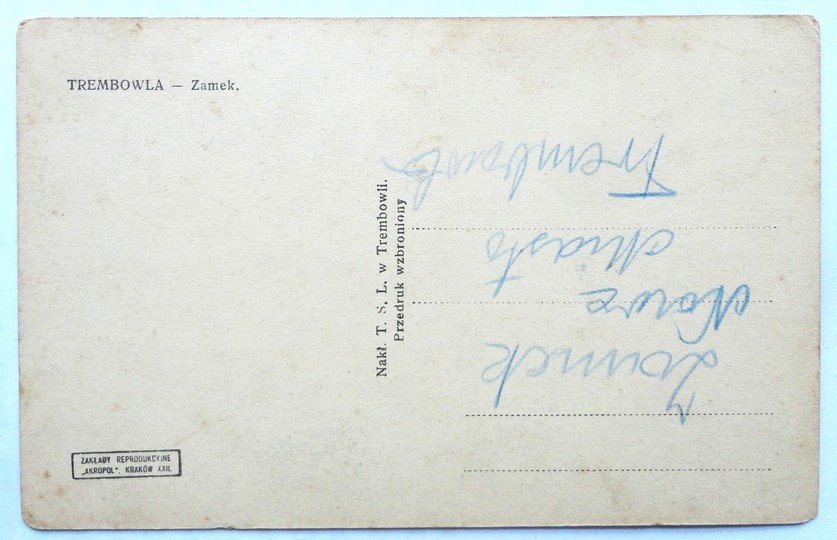 TREMBOWLA — Zamek.
Nakł. T. S. L. w Trembowli.
Przedruk wzbroniony
ZAKŁADY REPRODUKCYJNE
„AKROPOL”, KRAKÓW XXII.
Zamek
Nowe
Miasto
Trembowla